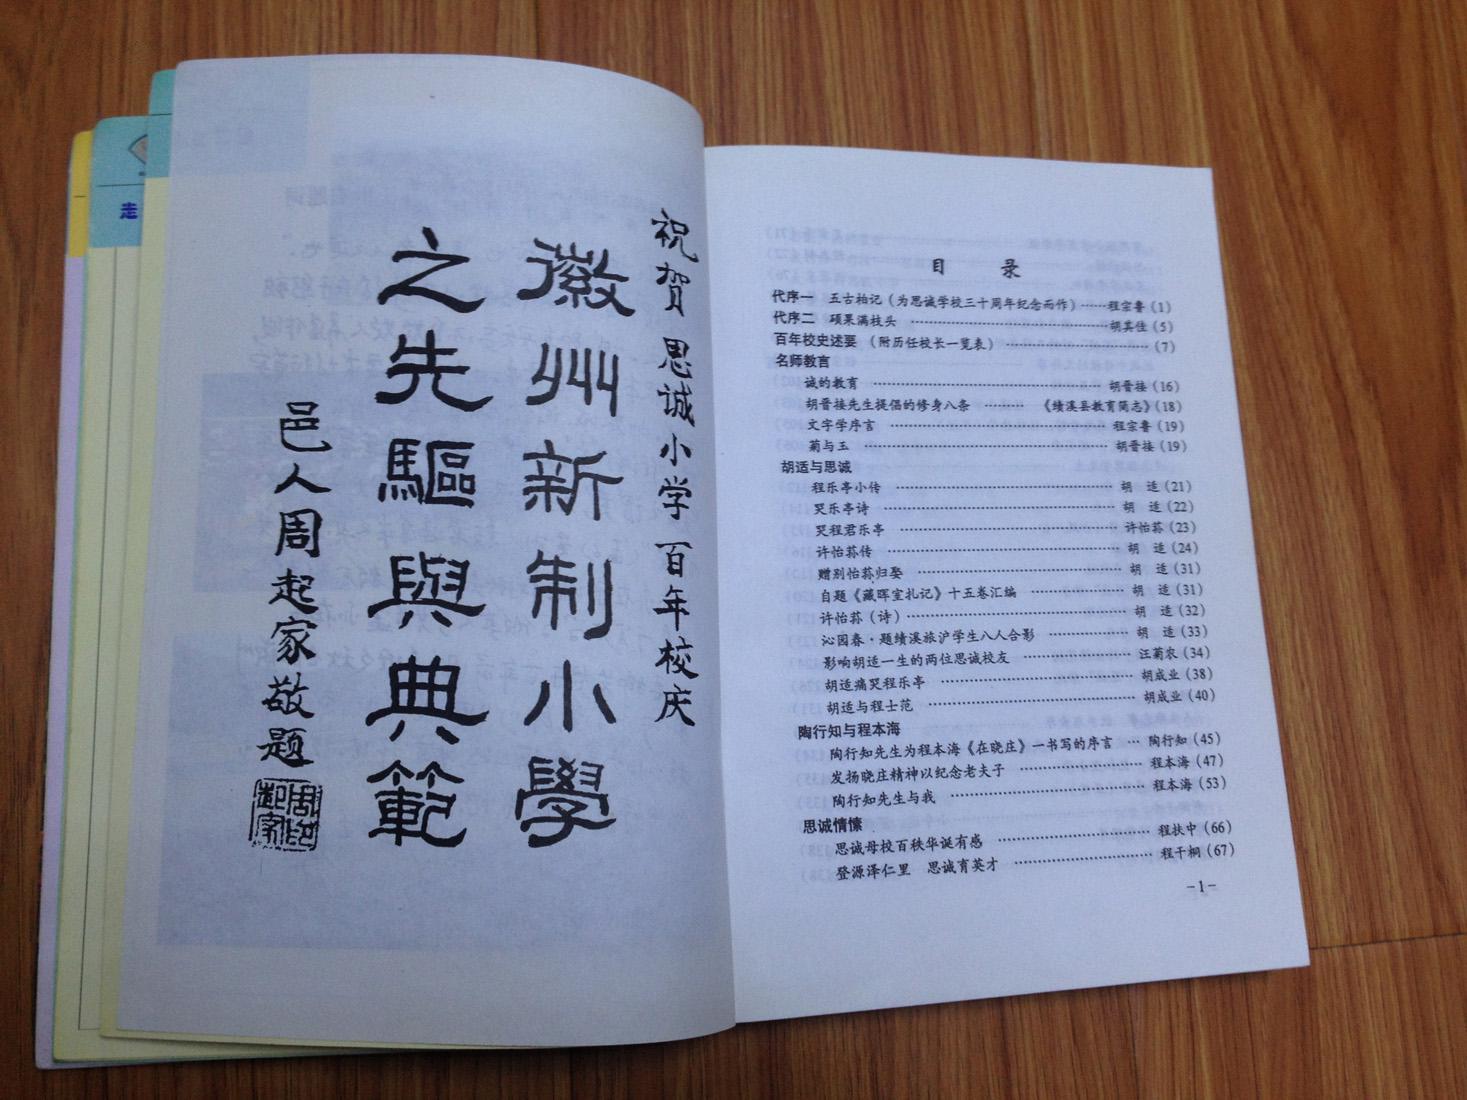 祝贺思诚小学百年校庆
徽州新制小學
之先驅與典範
邑人周起家敬题
走
目 录
代序一 五古柏记（为思诚学校三十周年纪念而作）……程宗鲁（1）
代序二 硕果满枝头 ……………………胡其佳（5）
百年校史述要 （附历任校长一览表）……………………（7）
名师教言
诚的教育 ……………………胡晋接（16）
胡晋接先生提倡的修身八条 ………《绩溪县教育简志》（18）
文字学序言 ……………………程宗鲁（19）
菊与玉 ……………………胡晋接（19）
胡适与思诚
程乐亭小传 ……………………胡 适（21）
哭乐亭诗 ……………………胡 适（22）
哭程君乐亭 ……………………许怡荪（23）
许怡荪传 ……………………胡 适（24）
赠别怡荪归娶 ……………………胡 适（31）
自题《藏晖室札记》十五卷汇编 …………胡 适（31）
许怡荪（诗）……………………胡 适（32）
沁园春·题绩溪旅沪学生八人合影 …………胡 适（33）
影响胡适一生的两位思诚校友 …………汪菊农（34）
胡适痛哭程乐亭 ……………………胡成业（38）
胡适与程士范 ……………………胡成业（40）
陶行知与程本海
陶行知先生为程本海《在晓庄》一书写的序言 …陶行知（45）
发扬晓庄精神以纪念老夫子 …………程本海（47）
陶行知先生与我 ……………………程本海（53）
思诚情愫
思诚母校百秩华诞有感 ……………………程扶中（66）
登源泽仁里 思诚育英才 ……………………程干桐（67）
-1-